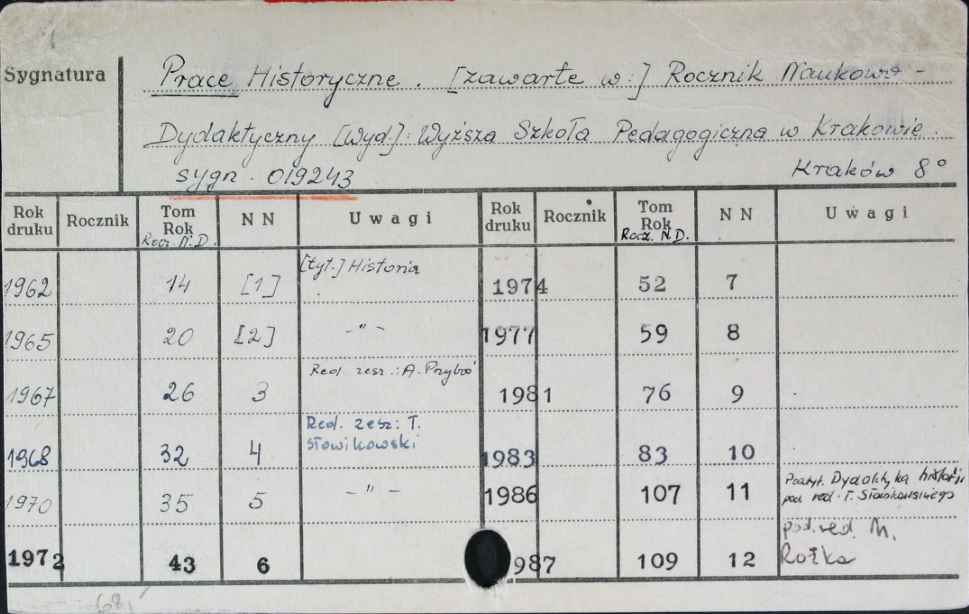 Sygnatura
Prace Historyczne. [zawarte w:] Rocznik Naukowo-
Dydaktyczny [Wyd]: Wyższa Szkoła Pedagogiczna w Krakowie.
sygn. 019243 Kraków 8°
Rok druku Rocznik Tom Rok Rocz. N.D. N N Uwagi Rok druku Rocznik Tom Rok Rocz. N.D. N N Uwagi
1962 14 [1] [tyt.] Historia 1974 52 7
1965 20 [2] -"- 1977 59 8
1967 26 3 Red. zesz.: A. 1981 76 9
1968 32 4 Red. zesz: T. Słowikowski 1983 83 10
1970 35 5 -"- 1986 107 11 Podtyt. Dydaktyka historii pod red. T. Słowikowskiego
1972 43 6 1987 109 12 pod. red. M. Rożka